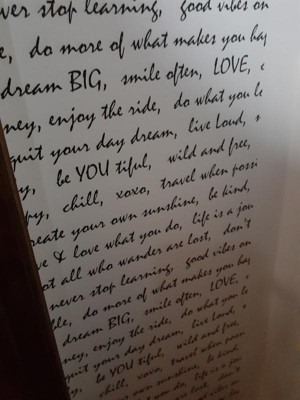 ver stop learning, good vibes on
e, do more of what makes you hap
dream BIG, smile often, LOVE,
ney, enjoy the ride, do what you lo
quit your day dream, live Loud,
y, be YOU tiful, wild and free,
py, chill, xoxo, travel when possi
create your own sunshine, be kind,
ve & love what you do, life is a jou
ot all who wander are lost, don't
never stop learning, good vibes on
ble, do more of what makes you hap
dream BIG, smile often, LOVE,
ney, enjoy the ride, do what you lo
quit your day dream, live Loud,
y, be YOU tiful, wild and free,
chill, xoxo, travel when possi
your own sunshine, be kind,
what you do, life is a
who wander are lost,